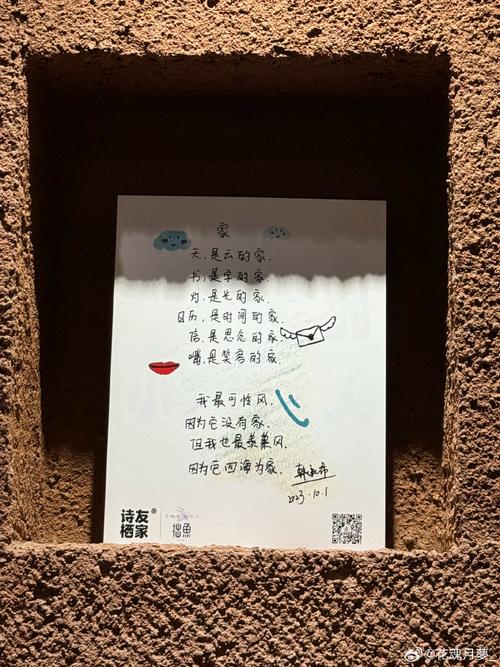 家
天,是云的家.
书,是字的家.
灯,是光的家.
日历,是时间的家.
信,是思念的家
嘴,是笑容的家.
我最可怜风,
因为它没有家.
但我也最羡慕风.
因为它四海为家.
2023.10.1
诗友®
栖家
拙魚
@花魂月夢